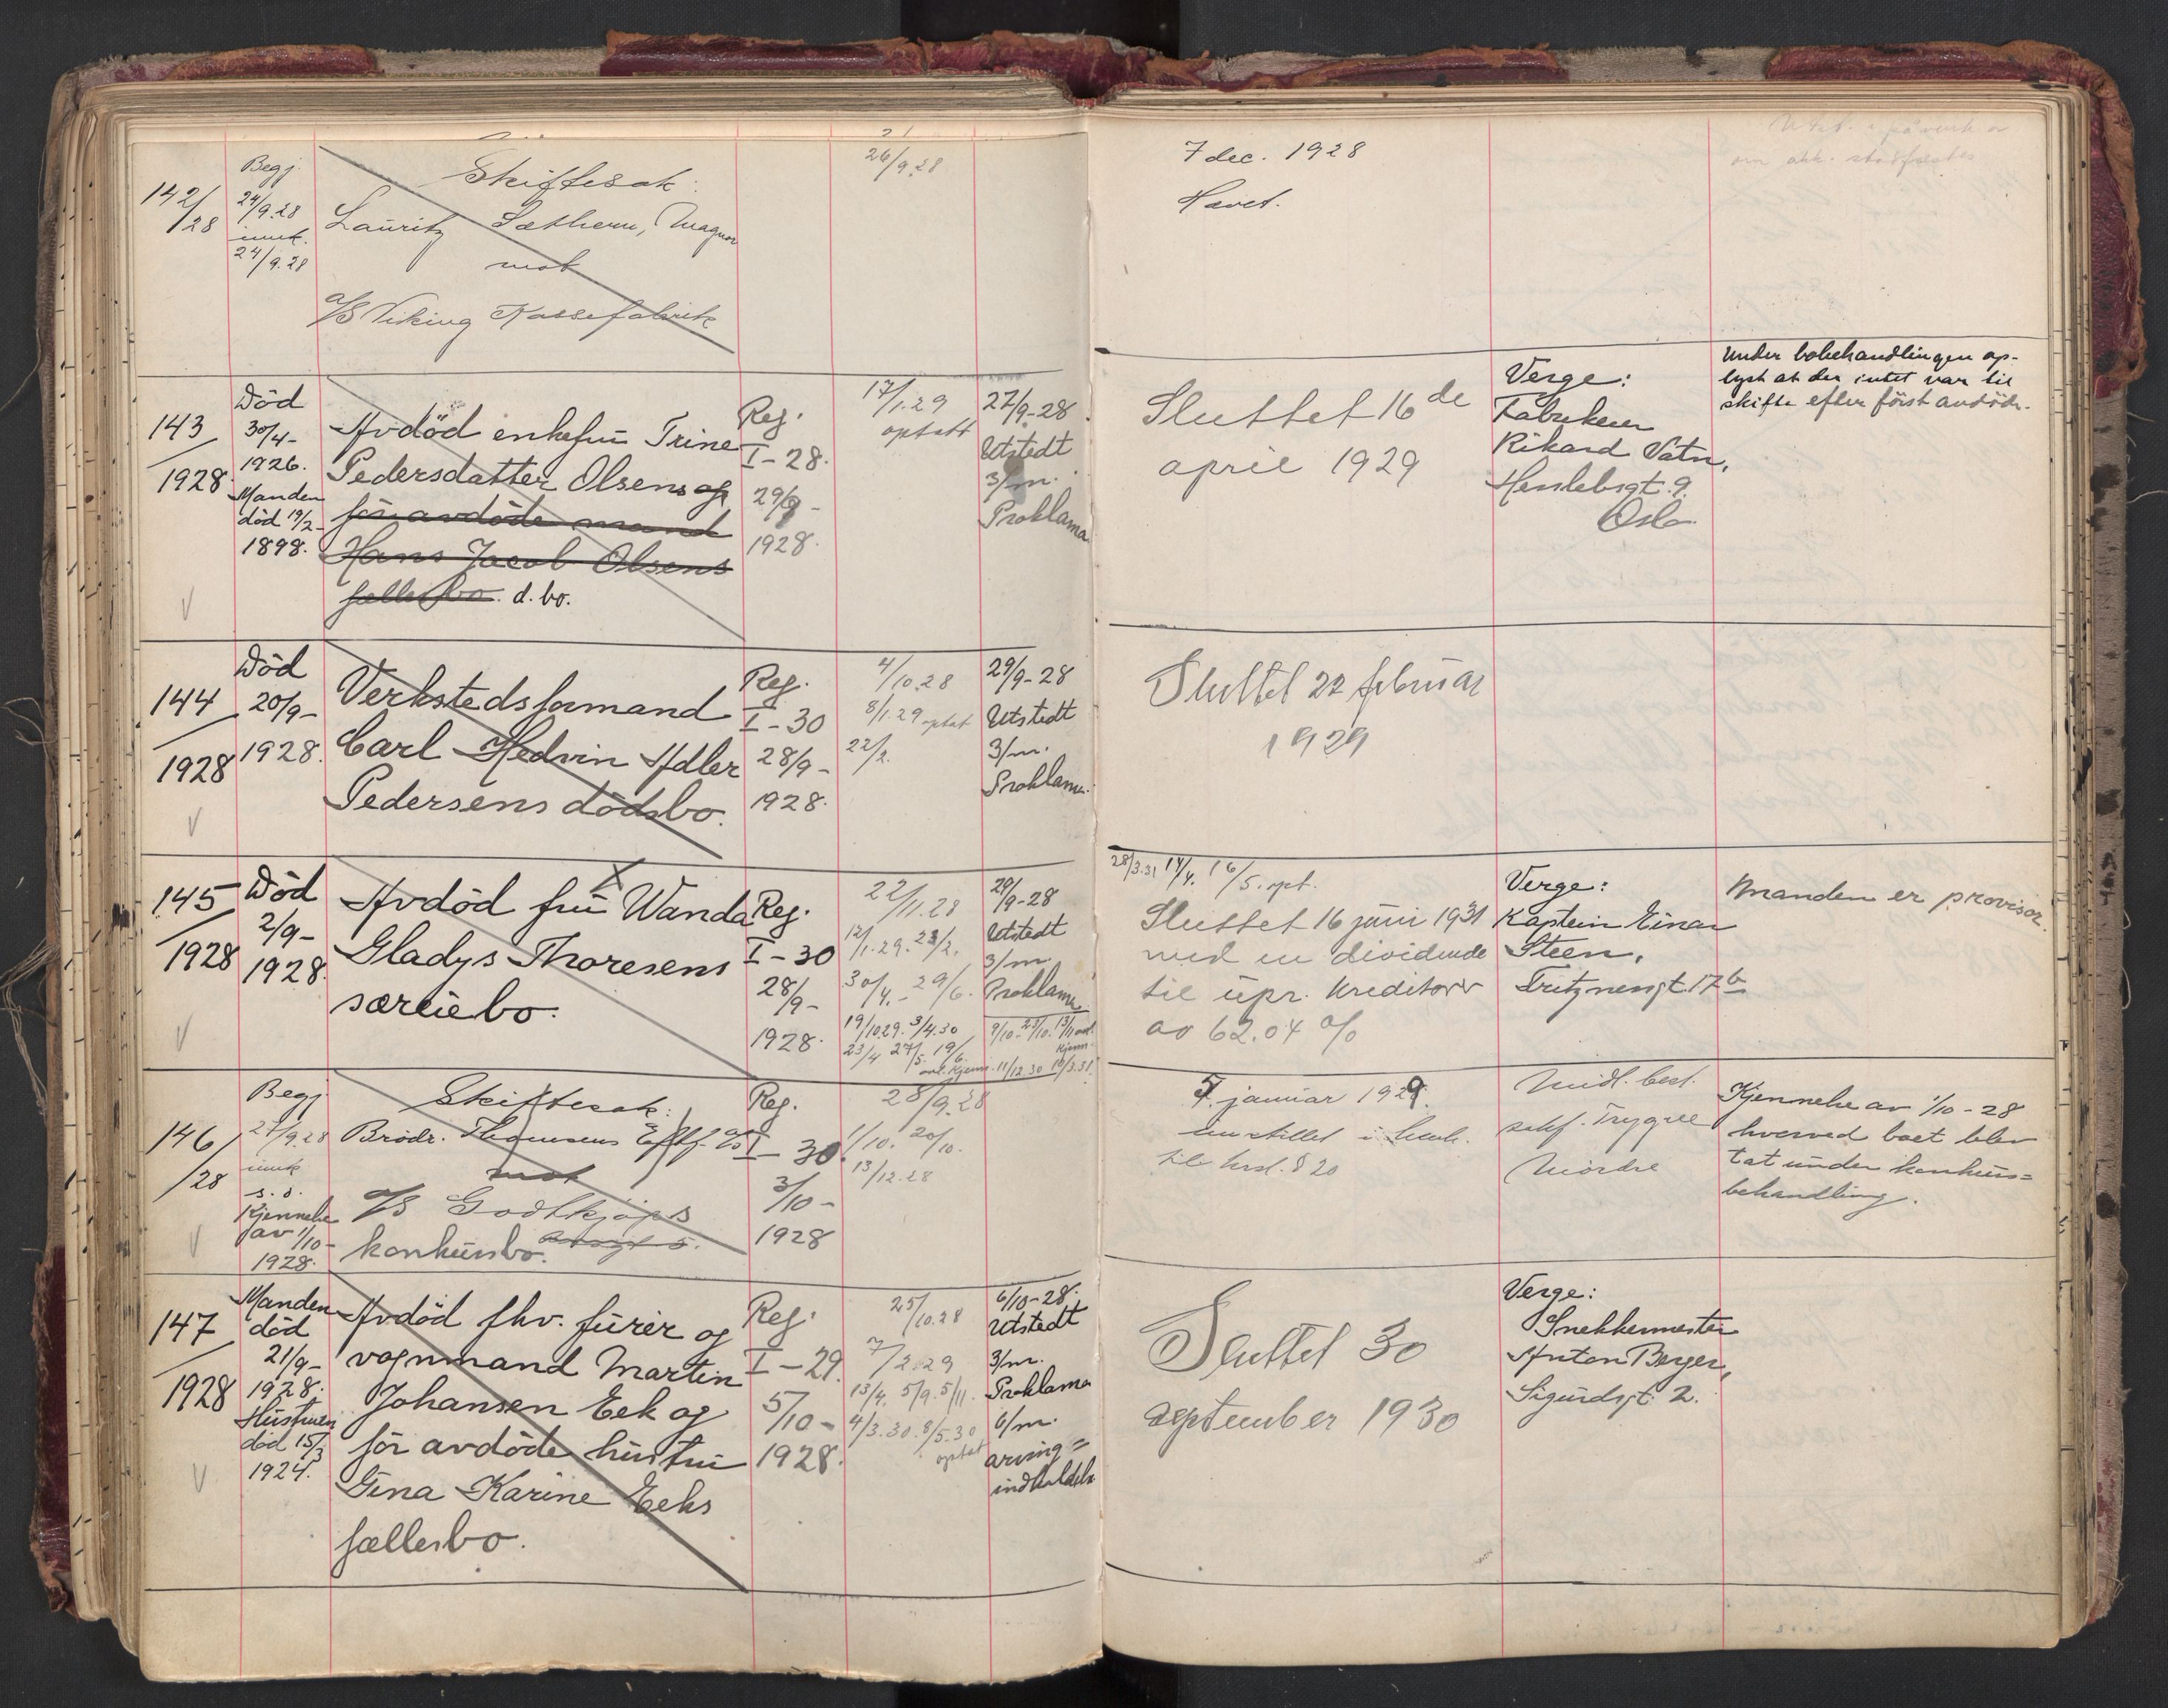 142/28
Begj.
24/9.28
innk.
24/9.28
Skiftesak:
Lauritz Sæthern, Magnor
mot
A/S Viking Kassefabrik
26/9.28
7 dec. 1928
Hævet.
143/1928
Död
30/4-
1926.
Manden
död 19/2-
1898.
Avdöd enkefru Trine
Pedersdatter Olsens og
för avdöde mand
Hans Jacob Olsens
fællesbo. d. bo.
Reg.
I-28.
29/9-
1928.
17/1.29
optatt
27/9-28
Utstedt
3/m.
Proklama
Sluttet 16de
april 1929
Verge:
Fabrikeier
Rikard Vatn,
Herslebsgt. 9.
Oslo
Under bobehandlingen op-
lyst at der intet var til
skifte efter först avdöde.
144/1928
Död
20/9-
1928.
Verkstedsformand
Carl Hedvin Adler
Pedersens dödsbo.
Reg.
I-30
28/9-
1928.
4/10.28
8/1.29 optat
22/2.
29/9-28
Utstedt
3/m.
Proklama.
Sluttet 22 februar
1929
145/1928
Död
2/9-
1928.
Avdöd fru Wanda
Gladys Thoresens
særeiebo.
Reg.
I-30
28/9-
1928.
22/11.28
12/1.29. 23/2.
30/4.- 29/6.
19/10.29. 3/4.30
23/4 27/5. 19/6.
29/9-28
Utstedt
3/m
Proklama
11/12.30
28/3.31 14/4. 16/5. opt.
Sluttet 16 juni 1931
med en dividende
til upr. kreditorer
av 62.04 %
Verge:
Kaptein Einar
Steen,
Fritznersgt. 17 b
Manden er provisor.
146/28
Begj.
27/9.28
innk.
s. d.
Kjennelse
av 1/10-
1928.
Skiftesak:
Brödr. Thomsens Eftf. A/S
mot
A/S Godtkjöps
konkursbo.
Reg.
I-30.
3/10-
1928
28/9.28
1/10. 20/10.
13/12.28
5. januar 1929.
innstillet i henh.
til krsl. § 20
Midl. best.
sakf. Trygve
Mördre
Kjennelse av 1/10-28
hvorved boet blev
tat under konkurs=
behandling.
147/1928
Manden
död
21/9-
1928.
Hustruen
död 15/3
1924.
Avdöd fhv. furér og
vognmand Martin
Johansen Eek og
för avdöde hustru
Gina Karine Eeks
fællesbo.
Reg.
I-29.
5/10-
1928.
25/10.28
7/2.29
13/4. 5/9. 5/11.
4/3.30. 8/5.30
optat
6/10-28.
Utstedt
3/m.
Proklama
6/m.
arving=
indkaldelse
Sluttet 30
september 1930
Verge:
Snekkermester
Anton Berger,
Sigurdsgt. 2.